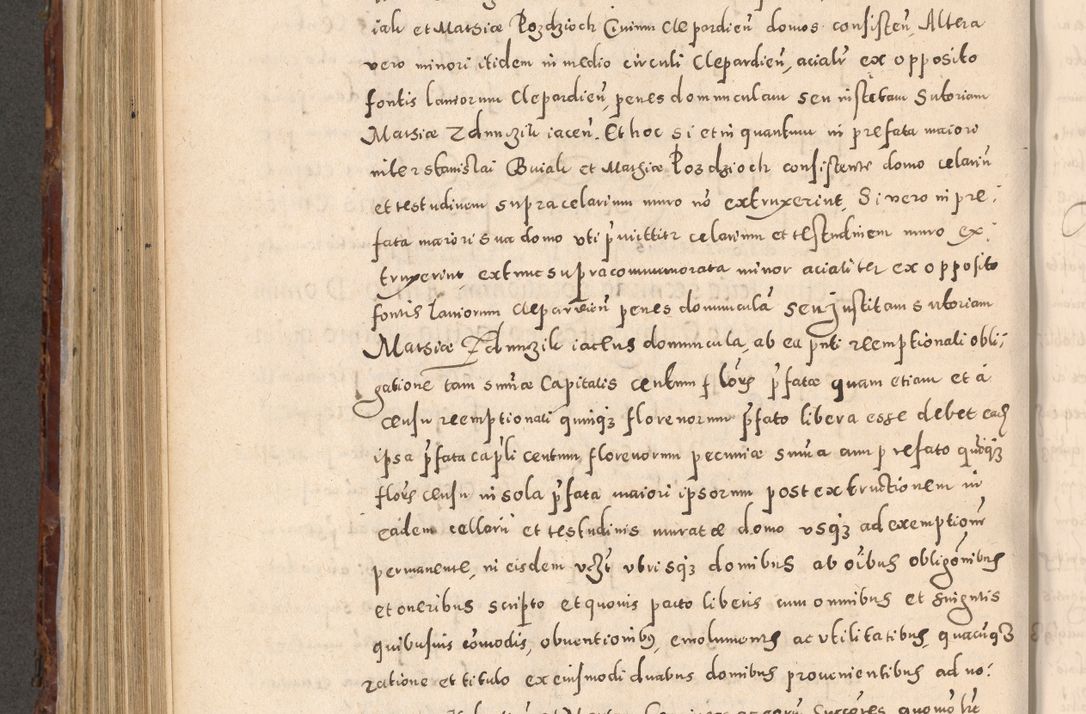 iali et Matsiæ Rozdzioch Civium Clepardieñ domos consisteñ, Altera
vero minori itidem in medio circuli Clepardieñ, aciali ex opposito
fontis laniorum Clepardieñ, penes domunculam seu institam Sutoriam
Matsiæ Zdunczik iaceñ. Et hoc si et in quantum in prefata maiori
inter Stanislai Buiali et Matsiæ Rozdzioch consistente domo celariũ
et testudinem supra celarium muro nõ extruxerint, Si vero in pre,
fata maiori sua domo uti p̃mittitr celarium et testudinem muro ex,
truxerint extunc supracommemorata minor acialiter ex opposito
fontis laniorum Clepardieñ penes domunculã seu institam sutoriam
Matsiæ Zdunczik iacens domuncula, ab ea p̃nti reemptionali obli,
gatione tam sum̃æ Capitalis centum floř p̃fatæ quam etiam et à
censu reemptionali quinq3 florenorum p̃fato libera esse debet eaq3
ipsa p̃fata cap̃li centum florenorum pecuniæ sum̃a cum prefato quĩq3
floř censu in sola p̃fata maiori ipsorum post extructionem in
eadem cellarii et testudinis muratæ domo usq3 ad exemptionẽ
permanente, in eisdem utriusq3 domibus ab oĩbus obligõnibus
et oneribus scripto et quovis pacto liberis cum omnibus et singulis
quibusvis cõmodis, obventionib9, emolumentis ac utilitatibus quacũq3
ratione et titulo ex eiusmodi duabus domibus provenientibus ad no,